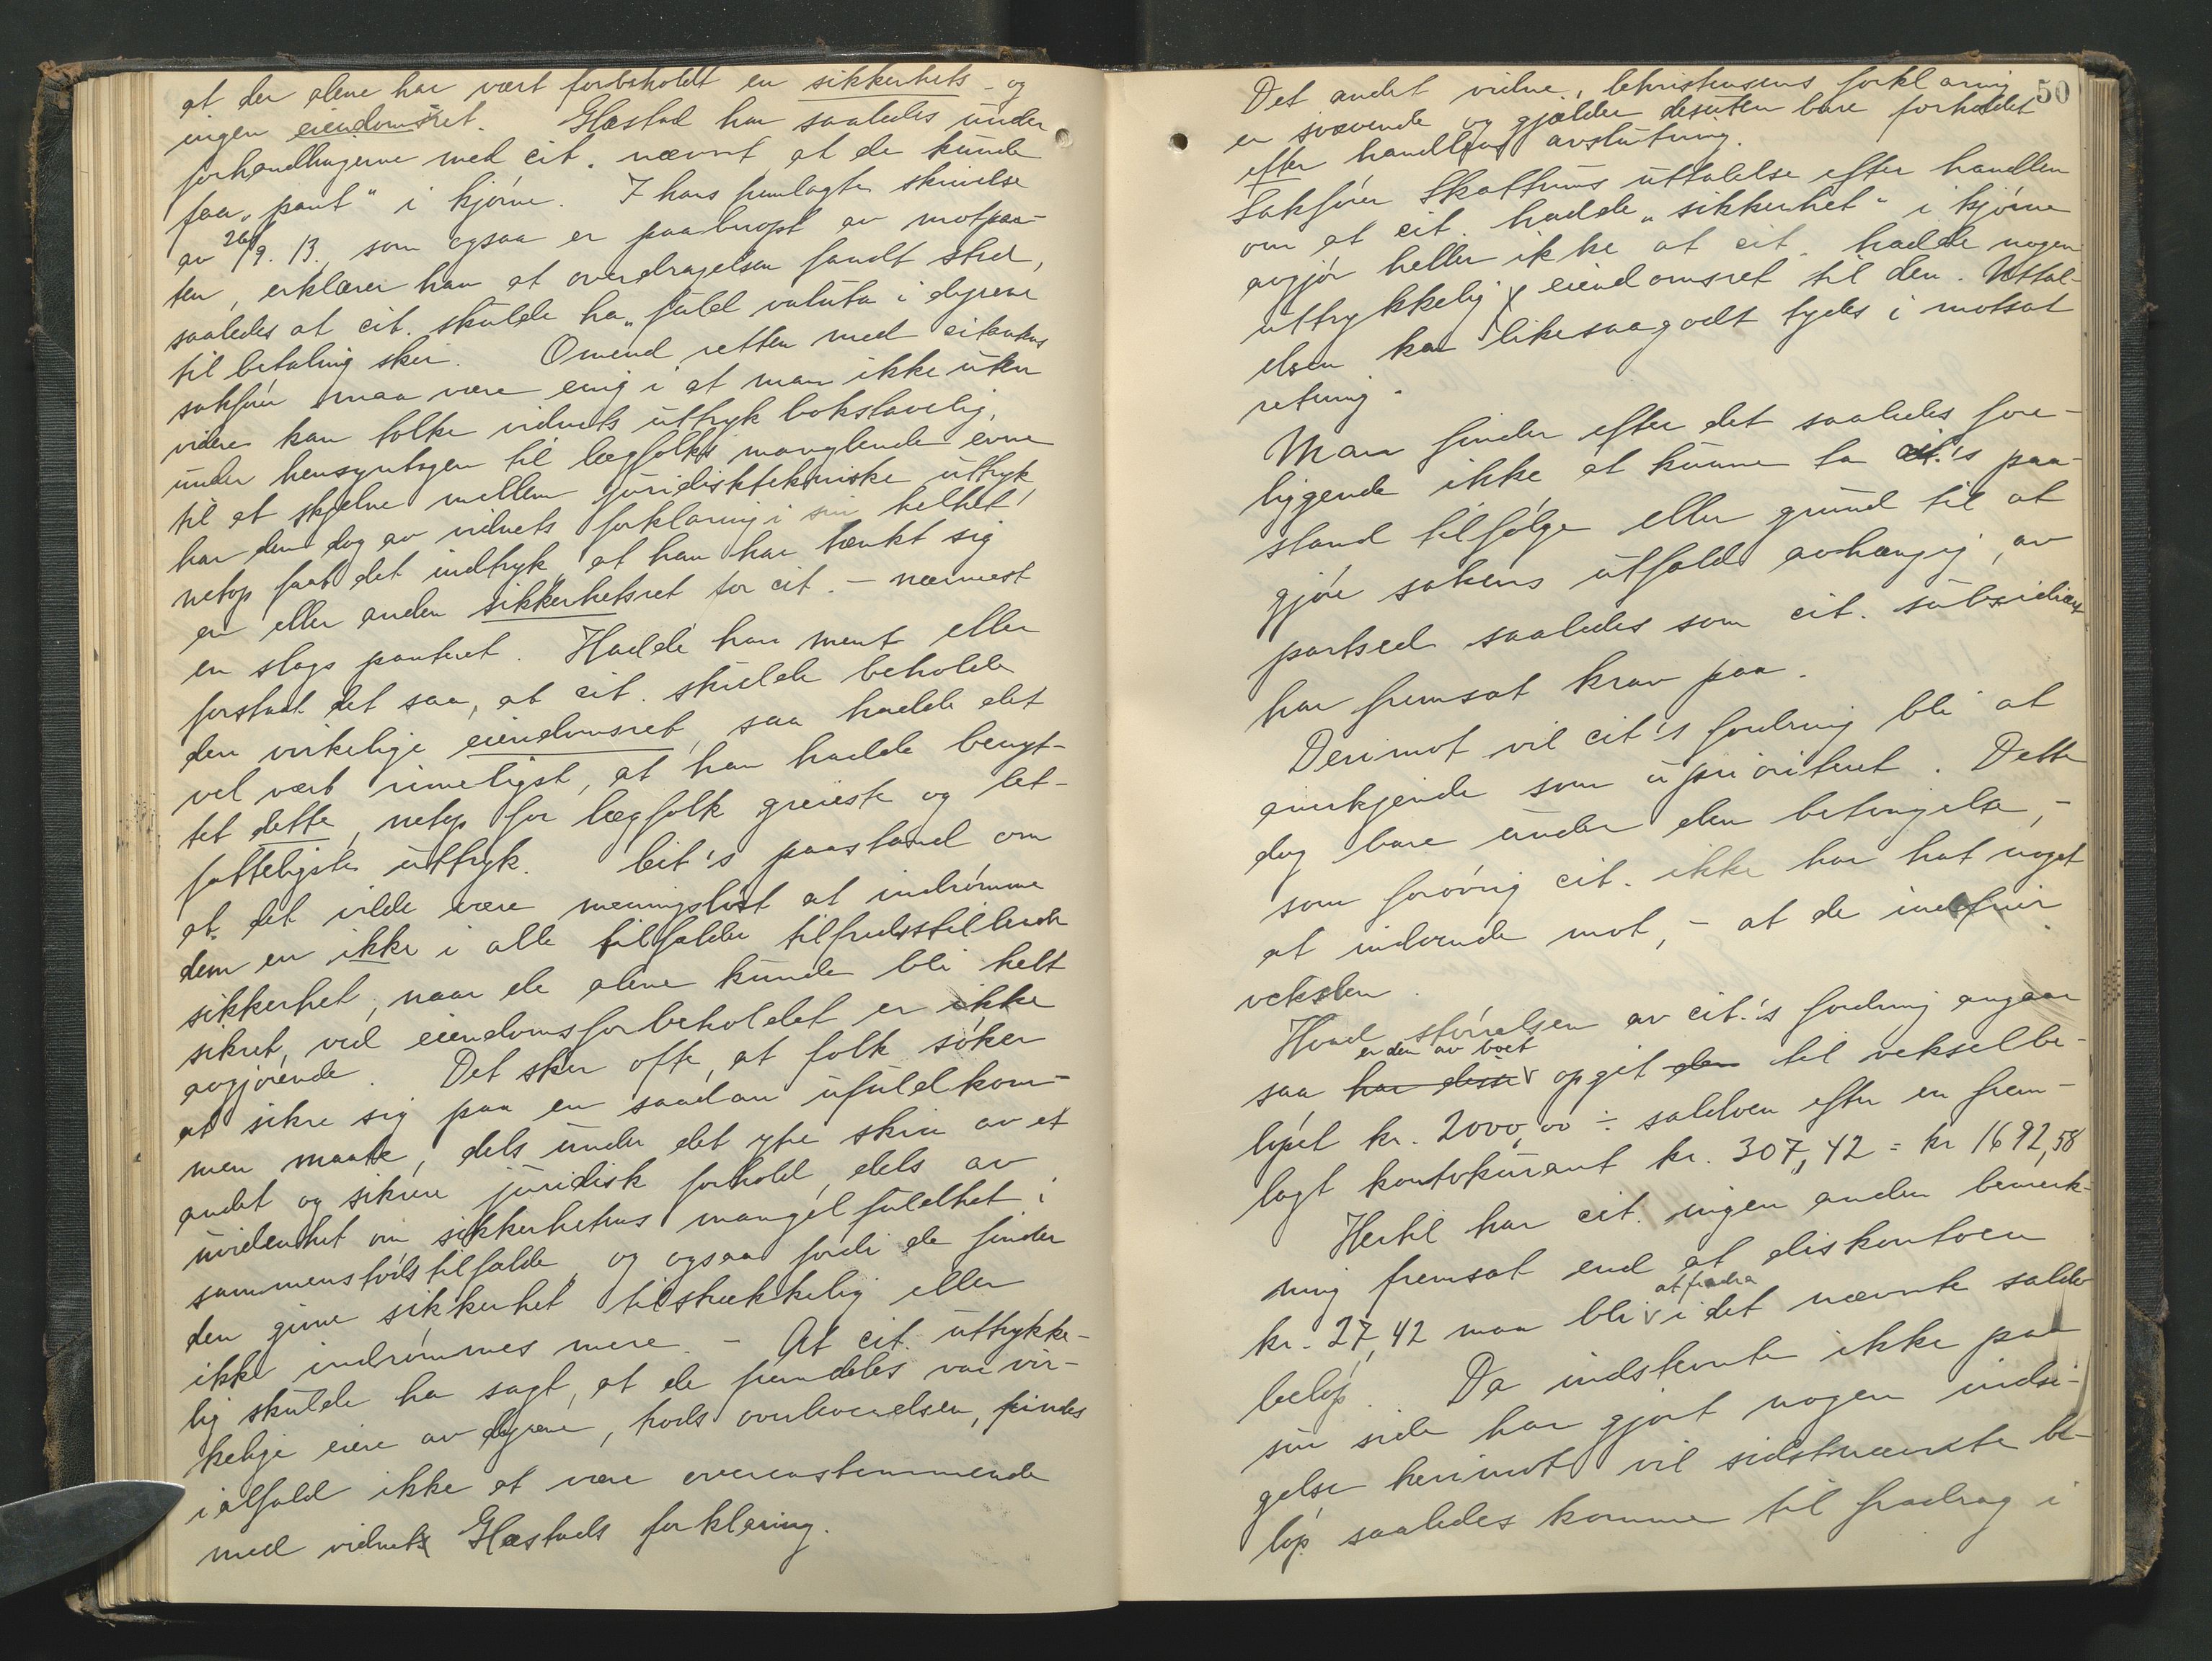 at der alene har vært forbeholdt en sikkerhets- og
ingen eiendomsret. Glæstad har saaledes under
forhandlingerne med cit. nævnt at de kunde
faa "pant" i kjørne. I hans fremlagte skrivelse
av 26/9. 13., som ogsaa er paaberopt av motpar-
ten, erklærer han at overdragelsen fandt sted,
saaledes at cit. skulde ha "fuld valuta i dyrene
til betaling sker. Omend retten med citantens
sakfører maa være enig i at man ikke uten
videre kan tolke vidnets uttryk bokstavelig,
under hensyntagen til lægfolks manglende evne
til at skjelne mellem juridisktekniske uttryk,
har den dog av vidnets forklaring i sin helhet
netop faat det indtryk, at han har tænkt sig
en eller anden sikkerhetsret for cit. - nærmest
en slags panteret. Hadde han ment eller
forstaat det saa, at cit. skulde beholde
den virkelige eiendomsret, saa hadde det
vel vært rimeligst, at han hadde benyt-
tet dette, netop for lægfolk greieste og let-
fatteligste uttryk. Cit's paastand om
at det vilde være meningsløst at indrømme
dem en ikke i alle tilfælde tilfredsstillende
sikkerhet, naar de alene kunde bli helt
sikret, ved eiendomsforbeholdet er ikke
avgjørende. Det sker ofte, at folk søker
at sikre sig paa en saadan ufuldkom-
men maate, dels under det ytre skin av et
andet og sikrere juridisk forhold, dels av
uvidenhet om sikkerhetens mangelfuldhet i
sammenstøtstilfælde, og ogsaa fordi de finder
den givne sikkerhet tilstrækkelig eller
ikke indrømmes mere. - At cit. uttrykke-
lig skulde ha sagt, at de fremdeles var vir-
kelige eiere av dyrene, trods overleverelsen, findes
ialfald ikke at være overensstemmende
med vidnets Glæstads forklaring.
50
Det andet vidne, Christensens forklaring
er svævende og gjælder desuten bare forholdet
efter handlens avslutning.
Sakfører Skattums uttalelse efter handlen
om at cit. hadde "sikkerhet" i kjørne
avgjør heller ikke at cit. hadde nogen
uttrykkelig eiendomsret til den. Uttal-
elsen kan likesaagodt tydes i motsat
retning.
Man finder efter det saaledes fore-
liggende ikke at kunne ta cit.'s paa-
stand tilfølge eller grund til at
gjøre sakens utfald avhængig av
partsed saaledes som cit. subsidiært
har fremsat krav paa.
Derimot vil cit's fordring bli at
anerkjende som uprioritert. Dette
dog bare under den betingelse, -
som forøvrig cit. ikke har hat noget
at indvende mot, - at de indfrir
vekslen.
Hvad størrelsen av cit.'s fordring angaar
er den av boet
saa har disse opgit den til vekselbe-
løpet kr. 2000,00 ÷ saldoen efter en frem-
lagt kontokurant kr. 307,42 = kr 1692,58
Hertil har cit. ingen anden bemerk-
ning fremsat end at diskontoen
at fradra
kr. 27,42 maa bli i det nævnte saldo
beløp. Da indstevnte ikke paa
sin side har gjort nogen indsi-
gelse herimot vil sidstnævnte be-
løp saaledes komme til fradrag i